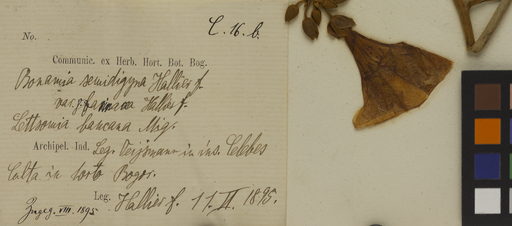 C. 16. b.
No.
Communic. ex Herb. Hort. Bot. Bog.
Bonamia semidigyna Hallier f.
var. farinacea Hallier f.
Lettsomia bancana Miq.
Archipel. Ind. Leg. Teijsmann in ins. Celebes
Culta in horto Bogor.
Leg. Hallier f. 11. II. 1895.
Ingeg. VIII. 1895